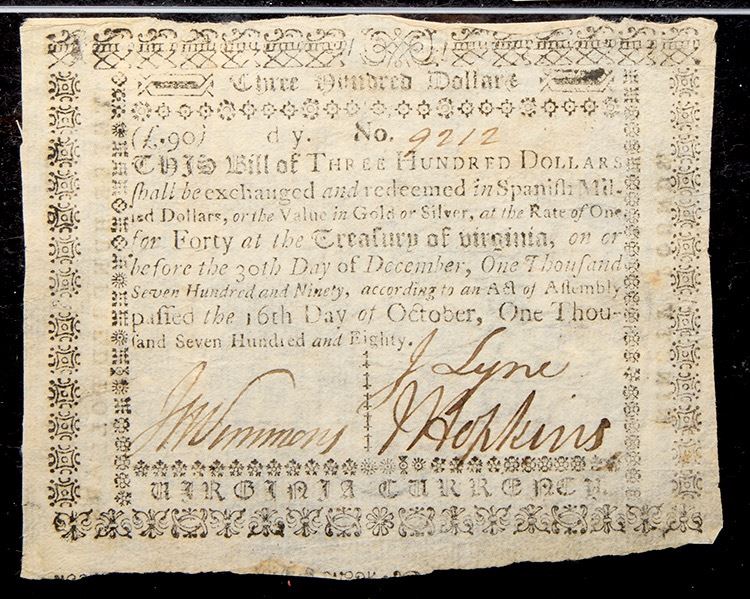 Three Hundred Dollars
(£.90) d y. No. 9212
THIS Bill of THREE HUNDRED DOLLARS
ſhall be exchanged and redeemed in Spaniſh Mil-
led Dollars, or the Value in Gold or Silver, at the Rate of One
for Forty at the Treaſury of Virginia, on or
before the 30th Day of December, One Thouſand
Seven Hundred and Ninety, according to an Act of Aſſembly
paſſed the 16th Day of October, One Thou-
ſand Seven Hundred and Eighty.
J Lyne
Simmons J Hopkins
VIRGINIA CURRENCY.